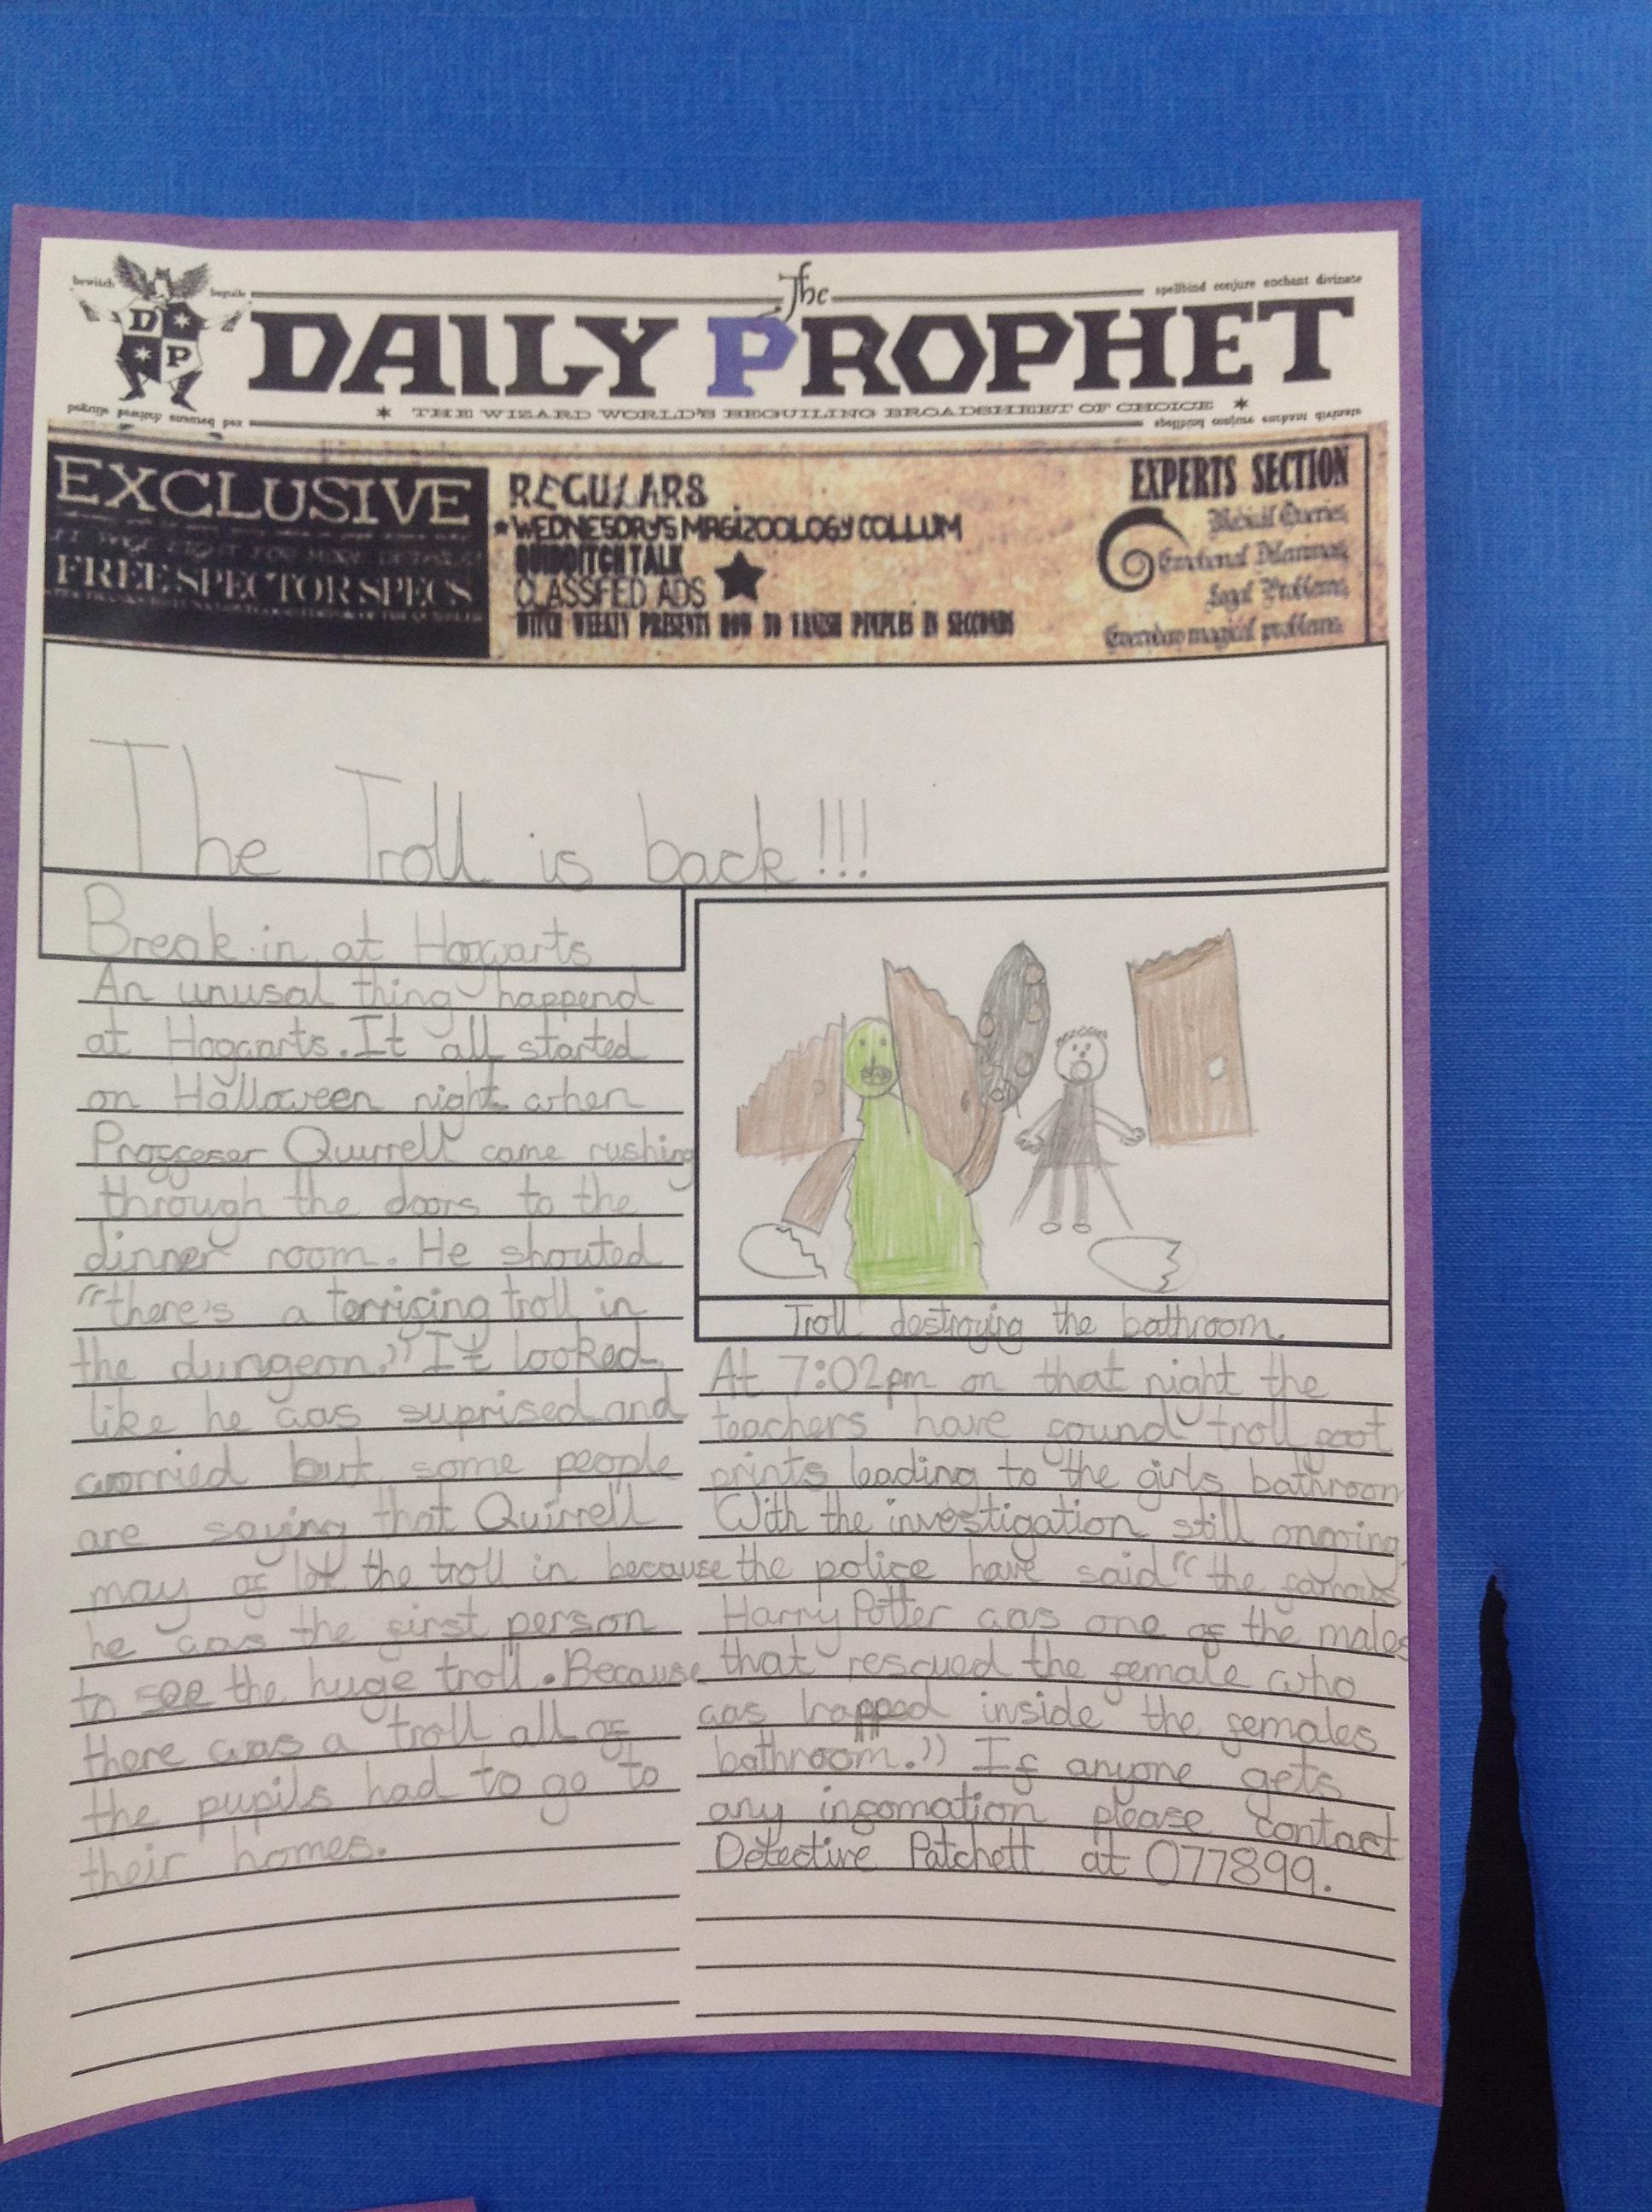 bewitch
beguile
The
spellbind conjure enchant divinate
DAILY PROPHET
D
P
* THE WIZARD WORLD'S BEGUILING BROADSHEET OF CHOICE *
EXCLUSIVE
FREE SPECTOR SPECS
REGULARS
WEDNESDAY'S MAGIZOOLOGY COLLUM
QUIDDITCH TALK
CLASSFED ADS
WITCH WEEKLY PRESENTS HOW TO VANISH PIMPLES IN SECONDS
EXPERTS SECTION
Medical Queries,
Emotional Dilemmas,
Legal Problems,
magical problems.
The Troll is back!!!
Break in at Hogwarts
An unusal thing happend
at Hogwarts. It all started
on Halloween night when
Proffeser Quirrell came rushing
through the doors to the
dinner room. He shouted
"there's a terrifing troll in
the dungeon." It looked
like he was suprised and
worried but some people
are saying that Quirrell
may of let the troll in because
he was the first person
to see the huge troll. Because
there was a troll all of
the pupils had to go to
their homes.
Troll destroying the bathroom.
At 7:02pm on that night the
teachers have found troll foot
prints leading to the girls bathroom
With the investigation still ongoing,
the police have said "the famous
Harry Potter was one of the males
that rescued the female who
was trapped inside the females
bathroom." If anyone gets
any infomation please contact
Detective Patchett at 077899.